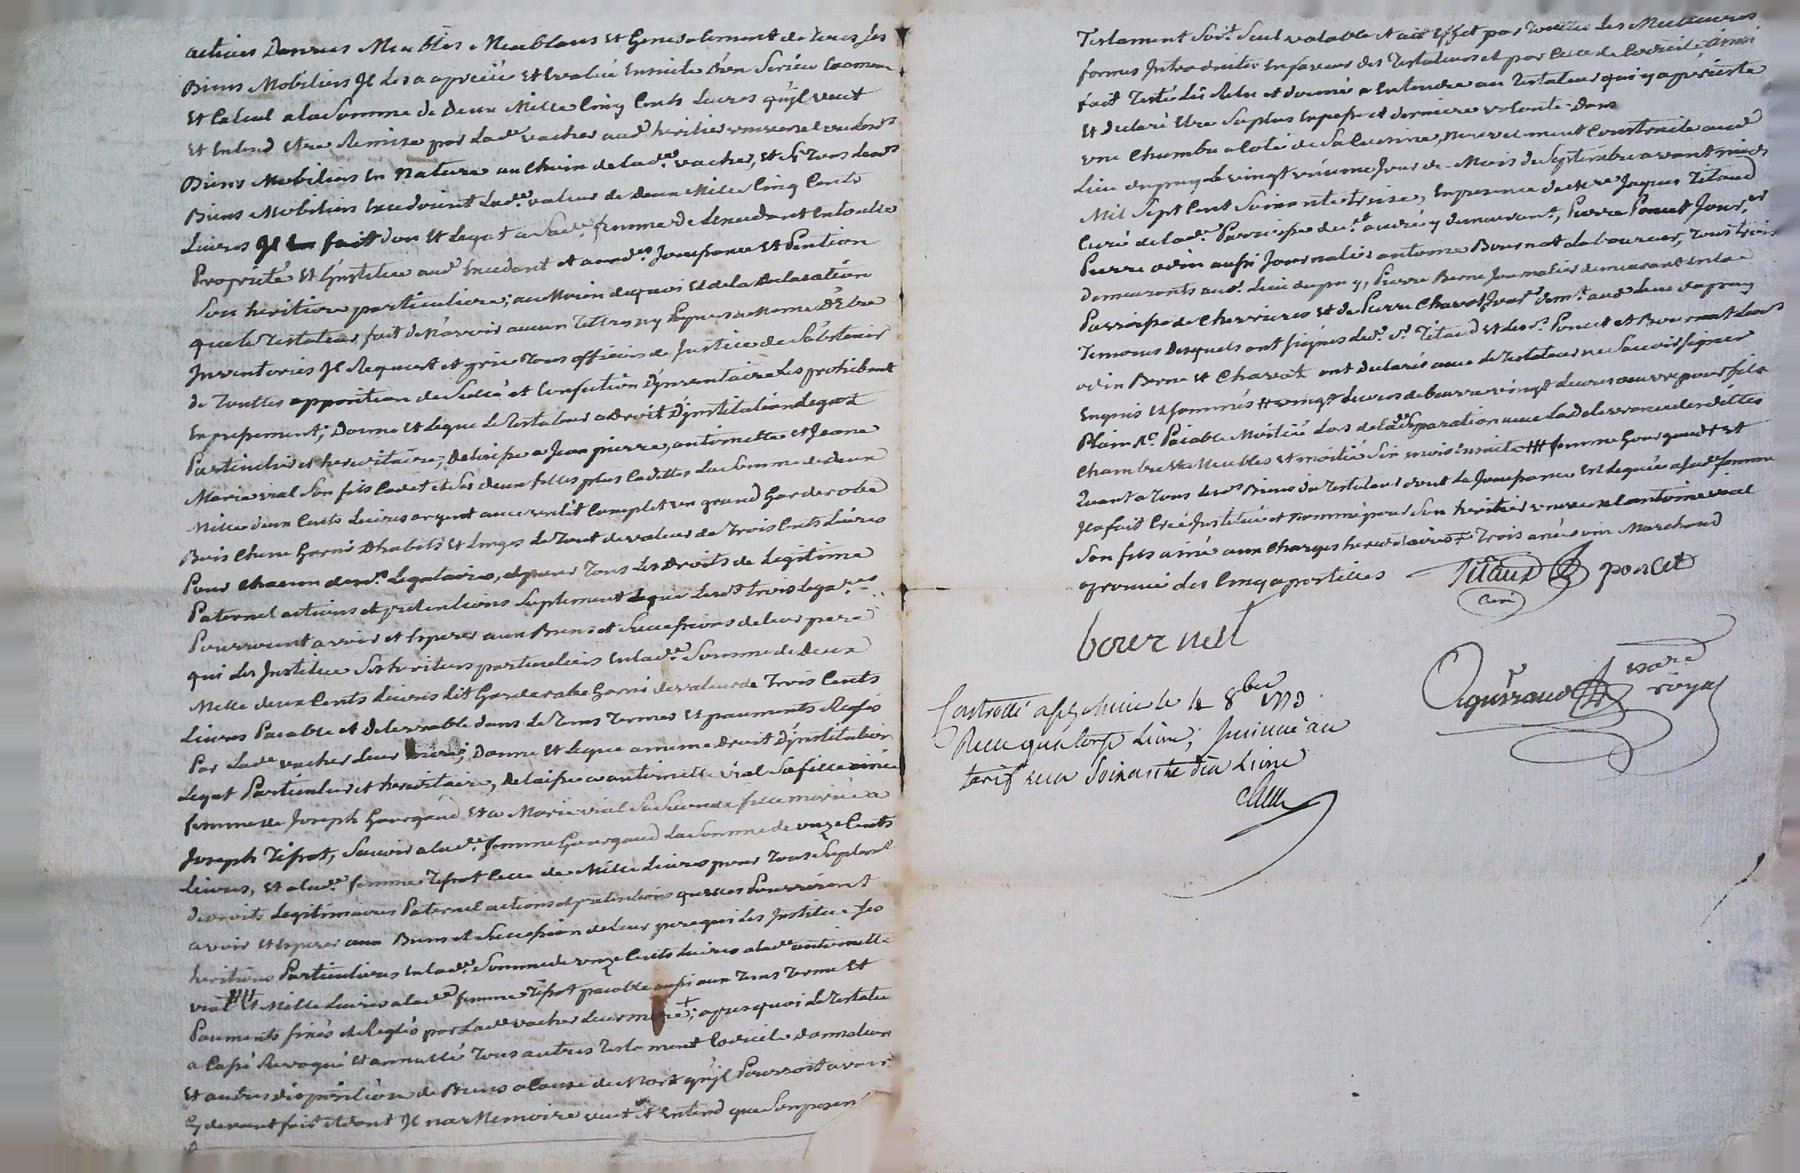 actives Danrees Meubles Meublans et Generalement de Tous ses
Biens Mobiliers Il les a apreciés et Evalué Ensuite d'un Serieu Examen
Et Calcul a la Somme de Deux Mille Cinq Cents Livres qu'il veut
Et Entend Etre Remise par Lade vacher aud heritier universel
Biens Mobiliers En Nature au Choix de lade vacher, et Si Tous Lesds
Biens Mobiliers Excedoint Lade valeur de Deux Mille Cinq Cents
Livres Il fait don et Legat a Sade femme de Lexcedant En toutte
Proprieté et L'institue aud Excedant et auxds Jouissance et Pention
Son heritiere particuliere; au Moien de quoi et de la Declaration
que le Testateur fait de N'avoir aucun Tittres ny Papiers a Meme D'Etre
Inventoriés Il Requiert et prie Tous officiers de Justice de S'abstenir
de Touttes apposition de Scelé et Confection D'inventaire Les prohibant
Expressement; Donne et Legue Le Testateur a Droit D'institution Legat
Particulier et hereditaire, Delaisse a Jean pierre, antoinette et Jeane
Marie vial Son fils Cadet et Ses deux filles plus Cadettes La Somme de deux
Mille deux Cents Livres argent avec un lit Complet un grand Garderobe
Bois Chene Garni D'habits et Linges Le Tout de valeur de Trois Cents Livres
Pour Chacun desds Legataires, et pour Tous Les Droits de Legitime
Paternel actions et pretentions Suplement que Lesds trois Legares
Pourroint avoir et Esperer aux Biens et Successions de leur pere
qui Les Institue Ses heritiers particuliers En lade Somme de Deux
Mille deux Cents Livres Lit Garderobe Garni de valeur de Trois Cents
Livres Paiable et Delivrable dans Le Tems Termes et paiements Reglés
Par Lade vacher Leur mere; Donne et Legue a meme Droit D'institution
Legat Particulier et hereditaire, Delaisse a antoinette vial Sa fille ainée
femme de Joseph Gourgaud et a Marie vial Sa Seconde fille mariée a
Joseph Tissot, Savoir a lade femme Gourgaud La Somme de onze Cents
Livres, et a lade femme Tissot Celle de Mille Livres pour Tous Suplent
de droits Legitimaires Paternel actions et pretentions qu'elles Pourroient
avoir et Esperer aux Biens et Succession de leur pere qui les Institue Ses
heritieres Particulieres En lade Somme de onze Cents Livres a lade antoinette
vial # et Mille Livres a lade femme Tissot paiable aussi aux Tems Terme Et
Paiements fixés et Reglés par Lade vacher Leur mere +; apres quoi Le Testateur
a Cassé Revoqué et annullé Tous autres Testament Codicile donnation
Et autres disposition de Biens a Cause de Mort qu'il Pourroit avoir
Cy devant fait et dont Il n'a Memoire veut et Entend que Son present
Testament Soit Seul valable et ait Effet par Touttes Les Meilleures
formes Introduites En faveur des Testateurs et par Celle de Codicile; ainsi
fait Testé Lû Relu et donné a Entendre au Testateur qui y a persisté
Et Declaré Etre Sa plus Expresse et derniere volonté. Dans
une Chambre a Coté de Sa Cuisine, Nouvellement Construite aud
Lieu du puy Le vingt neuvieme Jour du Mois de Septembre avant midi
Mil Sept Cent Soixante treize, En presence de Mre Jaques Titaud
Curé de lade Parroisse y demeurant, Pierre Poncet Jourer
Pierre odin aussi Journalier antoine Bournat Laboureur, Tous trois
Demeurants aud Lieu du puy, Pierre Berne Journalier demeurant En lade
Parroisse de Cherrieres et de Pierre Charet Jourer demt aud Lieu du puy
Temoins Desquels ont signés Ledt Sr Titaud et Lesds Poncet et Bournat Lesds
odin Berne et Charet ont declarés avec Le Testateur ne Savoir signer
Enquis et sommés # vingt Livres de beurre vingt Livres œuvre pour fil
Plain Paiable Moitié Lors de lade Separation avec La Delivrance desdittes
Chambre et Meubles et moitié Six mois Ensuite # femme Gourgaud + et
Quant a Tous Lesds Biens du Testateur dont La Jouissance Est Leguée a sade femme
Il a fait Creé Institué et Nommé pour Son heritier universel antoine vial
Son fils ainé aux Charges hereditaires Trois
aprouvé des Cinq apostilles
Titaud
Curé
poncet
bournat
notre
royal
Controllé a St chamond le 4 8bre 1773
Recu quatorze Livres; Insinué au
tarif recu Soixante dix Livres